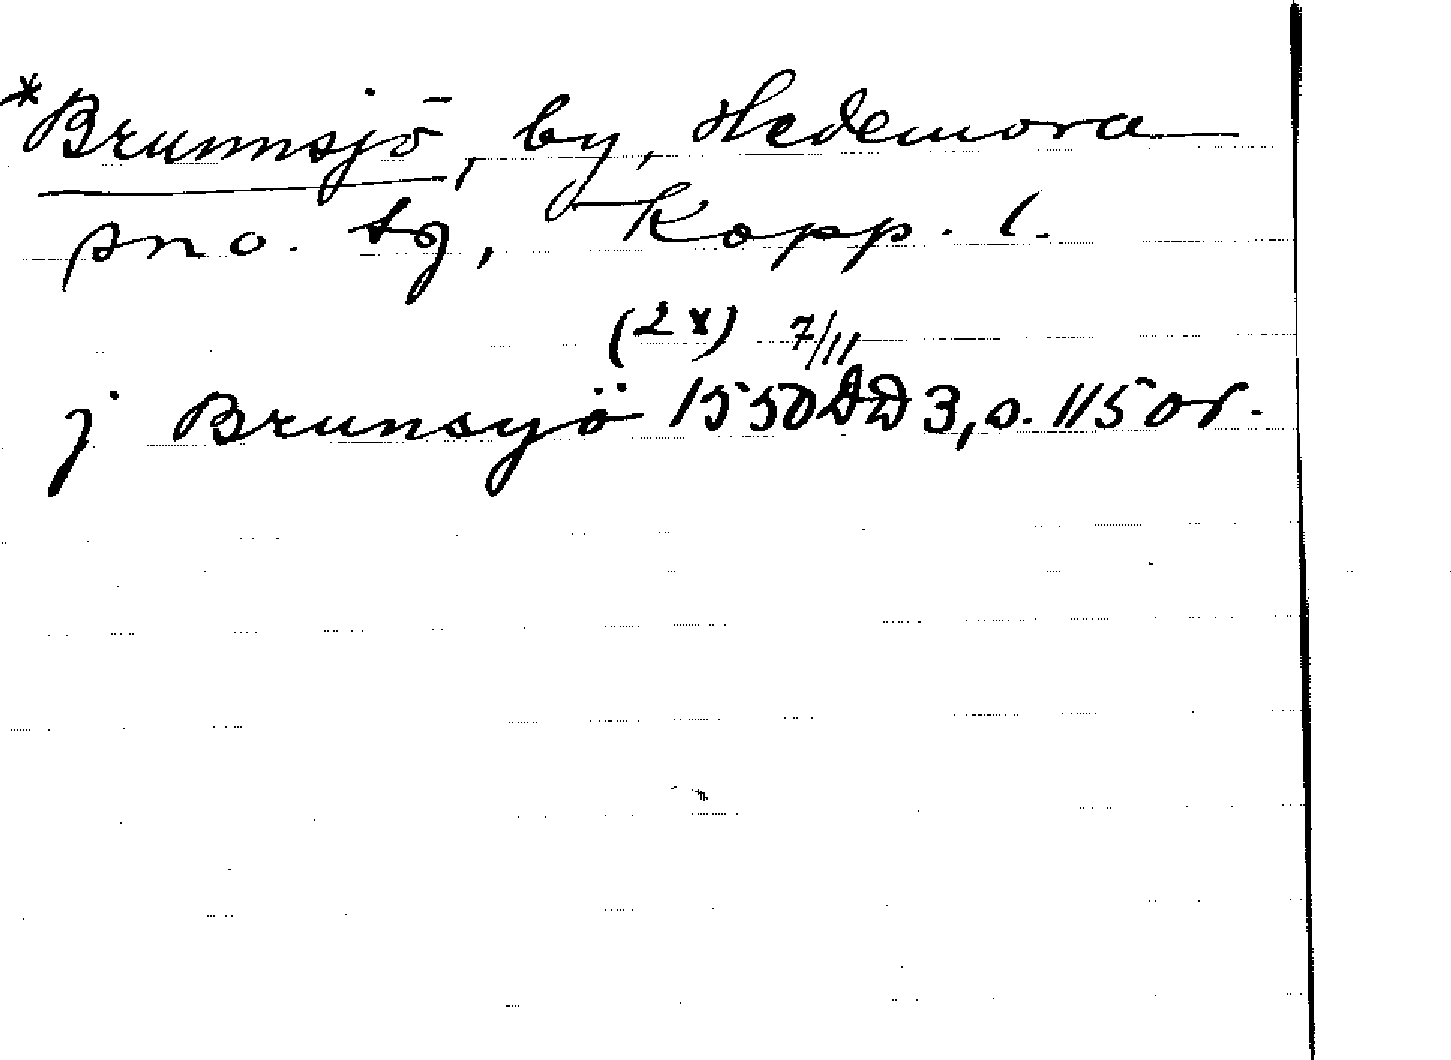 *Brunnsjö, by, Hedemora
sn o. tg, Kopp. l.
(2x) 7/11
j Brunsyö 1550 DD 3, s. 115 or.